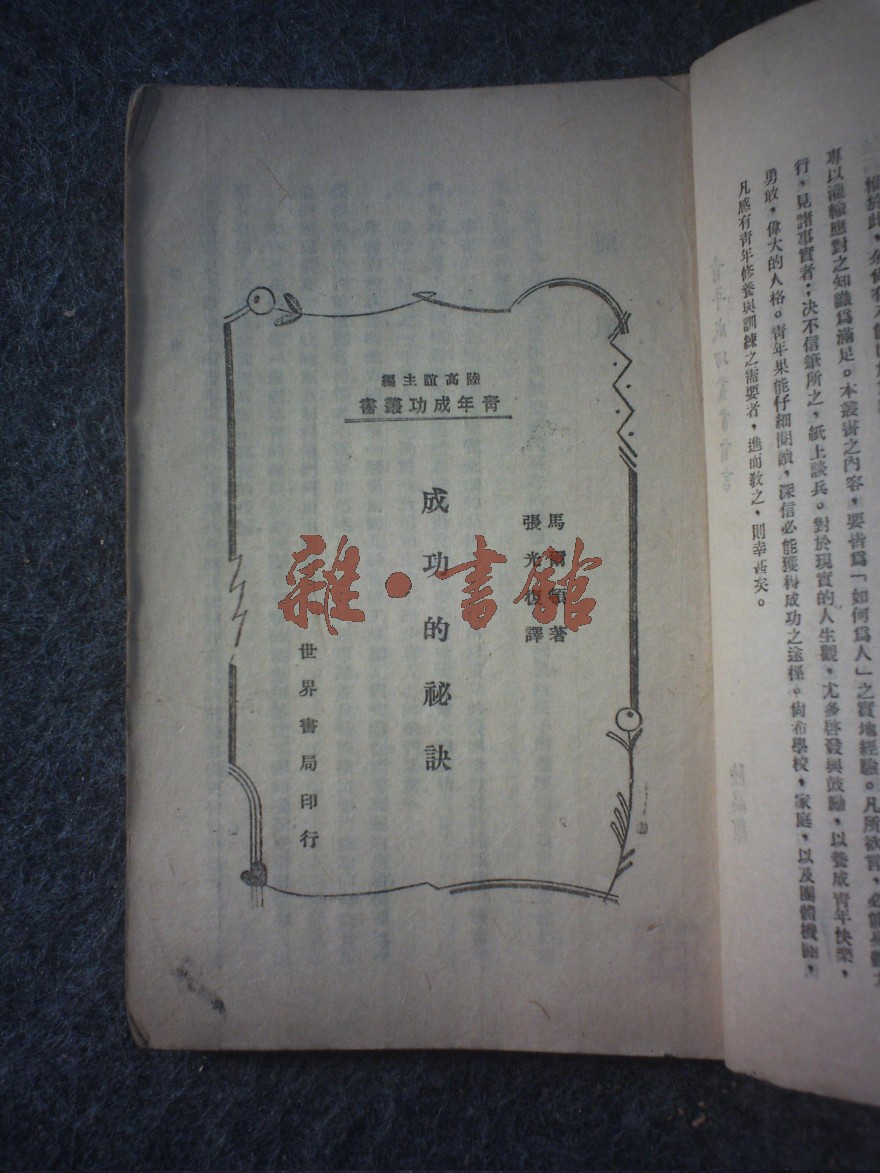 專以灌輸應對之知識爲滿足。本叢書之內容，要皆爲「如何爲人」之實地經驗。凡所欲言，必能身體力
行，見諸事實者；決不信筆所之，紙上談兵。對於現實的人生觀，尤多啓發與鼓勵，以養成青年快樂，
勇敢，偉大的人格。青年果能仔細閱讀，深信必能獲得成功之途徑。尚希學校，家庭，以及團體機關，
凡感有青年修養與訓練之需要者，進而敎之，則幸甚矣。
陸高誼主編
青年成功叢書
馬爾頓著
張光復譯
成功的祕訣
世界書局印行
雜·書館